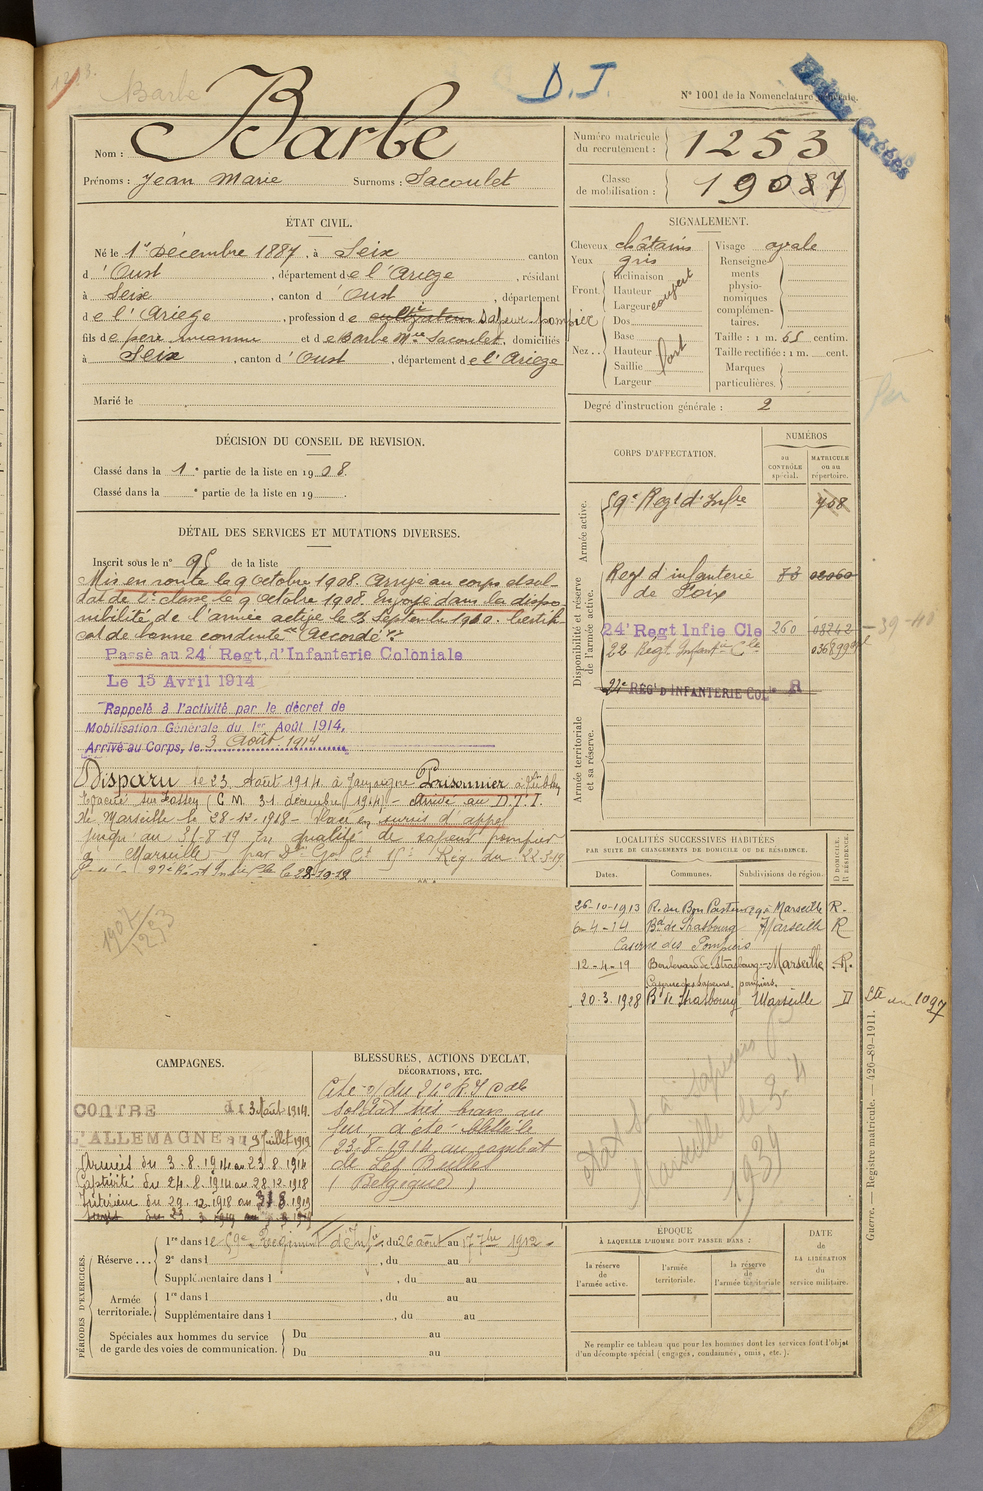 1253.
Barbe
D. I.
N° 1001 de la Nomenclature générale.
Nom : Barbe
Prénoms : Jean Marie Surnoms : Sacoulet
Numéro matricule du recrutement : 1253
Classe de mobilisation : 1907
ÉTAT CIVIL.
Né le 1er Décembre 1887, à Seix canton
d'Oust, département de l'Ariège, résidant
à Seix, canton d'Oust, département
de l'Ariège, profession de cultivateur Sapeur-pompier
fils de père inconnu et de Barbe Mie Sacoulet, domiciliés
à Seix, canton d'Oust, département de l'Ariège
Marié le
SIGNALEMENT.
Cheveux châtains
Yeux gris
Front. Inclinaison
Hauteur
Largeur
Nez.. Dos
Base
Hauteur
Saillie
Largeur
Visage ovale
Renseignements physionomiques complémentaires.
Taille : 1 m. 65 centim.
Taille rectifiée : 1 m. cent.
Marques particulières.
Degré d'instruction générale : 2
DÉCISION DU CONSEIL DE REVISION.
Classé dans la 1e partie de la liste en 1908.
Classé dans la e partie de la liste en 19
DÉTAIL DES SERVICES ET MUTATIONS DIVERSES.
Inscrit sous le n° 95 de la liste
Mis en route le 9 octobre 1908. Arrivé au corps et sol-
dat de 2e classe le 9 octobre 1908. Envoyé dans la dispo-
nibilité de l'armée active le 25 Septembre 1910. Certifi-
cat de bonne conduite "Accordé"
Passé au 24e Regt. d'Infanterie Coloniale
Le 15 Avril 1914
Rappelé à l'activité par le décret de
Mobilisation Générale du 1er Août 1914,
Arrivé au Corps, le 3 Août 1914
Disparu le 23 Août 1914 à Jamoigne Prisonnier à
évacué sur Lassen (C.M. 31 décembre 1914) - Arrivé au D.T.I.
de Marseille le 28-12-1918 - Placé en sursis d'appel
jusqu'au 31-8-19 En qualité de sapeur pompier
à Marseille par Don Gal Ct 15e Rég. du 22-3-19
1907/1253
CORPS D'AFFECTATION.
NUMÉROS
au CONTRÔLE spécial.
MATRICULE ou au répertoire.
Armée active.
59e Regt d'Infie 758
Disponibilité et réserve de l'armée active.
Regt d'infanterie de Foix
24e Regt Infie Cle 260 08242
22 Regt Infantie Cle
22e REGt D'INFANTERIE COLle R
Armée territoriale et sa réserve.
LOCALITÉS SUCCESSIVES HABITÉES
PAR SUITE DE CHANGEMENTS DE DOMICILE OU DE RÉSIDENCE.
Dates. Communes. Subdivisions de région. D DOMICILE. R RÉSIDENCE.
26-10-1913 R. du Bon Pasteur 29a Marseille R.
6-4-14 Bd de Strasbourg Marseille R
Caserne des Pompiers
12-4-19 Boulevard de Strasbourg Marseille R.
Caserne des sapeurs pompiers.
20-3-1928 Bd de Strasbourg Marseille D
CAMPAGNES.
CONTRE du 3 Août 1914.
L'ALLEMAGNE au 9 Juillet 1919
Armées du 3.8.1914 au 23.8.1914
Captivité du 24.8.1914 au 28.12.1918
Intérieur du 29.12.1918 au
BLESSURES, ACTIONS D'ECLAT,
DÉCORATIONS, ETC.
Cité o/ du 24e R.I Cole
soldat très brave au
feu, a été blessé le
23-8-1914 au combat
de Les Bulles
(Belgique)
PÉRIODES D'EXERCICES.
Réserve... 1re dans le 59e Régiment d'Infie, du 26 août au 17 7bre 1912.
2e dans l , du au
Supplémentaire dans l , du au
Armée territoriale. 1re dans l , du au
Supplémentaire dans l , du au
Spéciales aux hommes du service de garde des voies de communication. Du au
Du au
ÉPOQUE
À LAQUELLE L'HOMME DOIT PASSER DANS :
la réserve de l'armée active.
l'armée territoriale.
la réserve de l'armée territoriale
DATE de LA LIBÉRATION du service militaire.
Ne remplir ce tableau que pour les hommes dont les services font l'objet
d'un décompte spécial (engagés, condamnés, omis, etc.).
Guerre. — Registre matricule. — 426-89-1911.